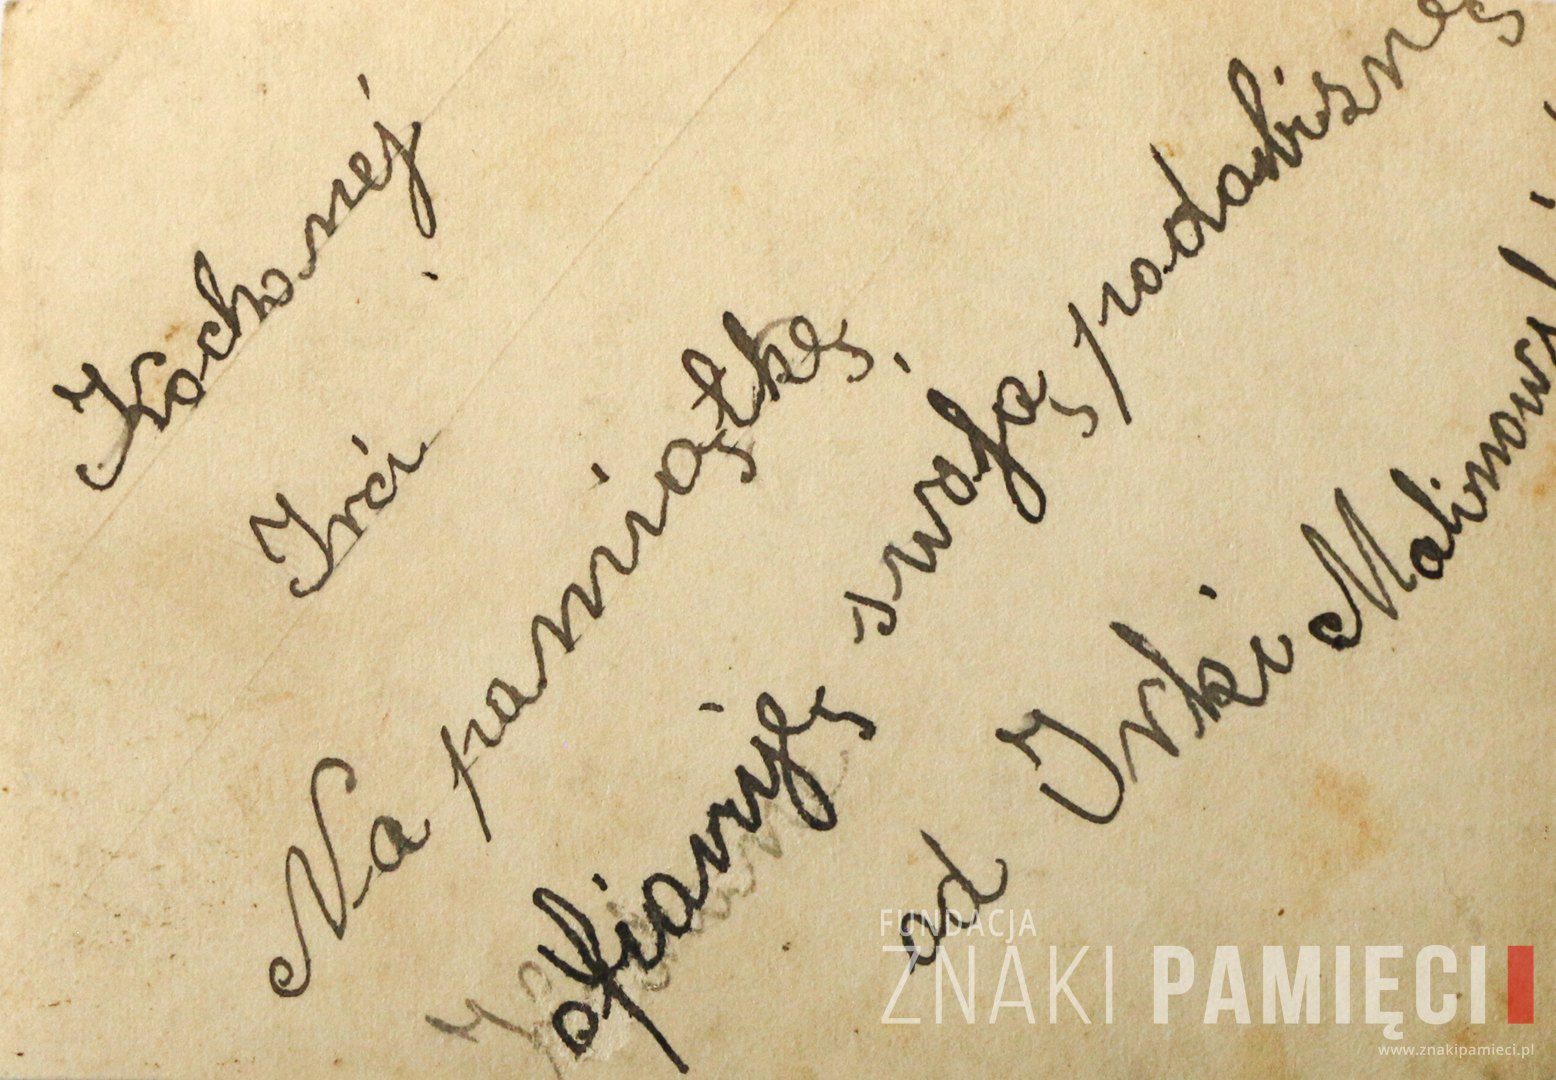 Kochanej
Irci
Na pamiątkę
ofiaruję swoją podobiznę
od Irki Malinowski
FUNDACJA
ZNAKI PAMIĘCI
www.znakipamieci.pl